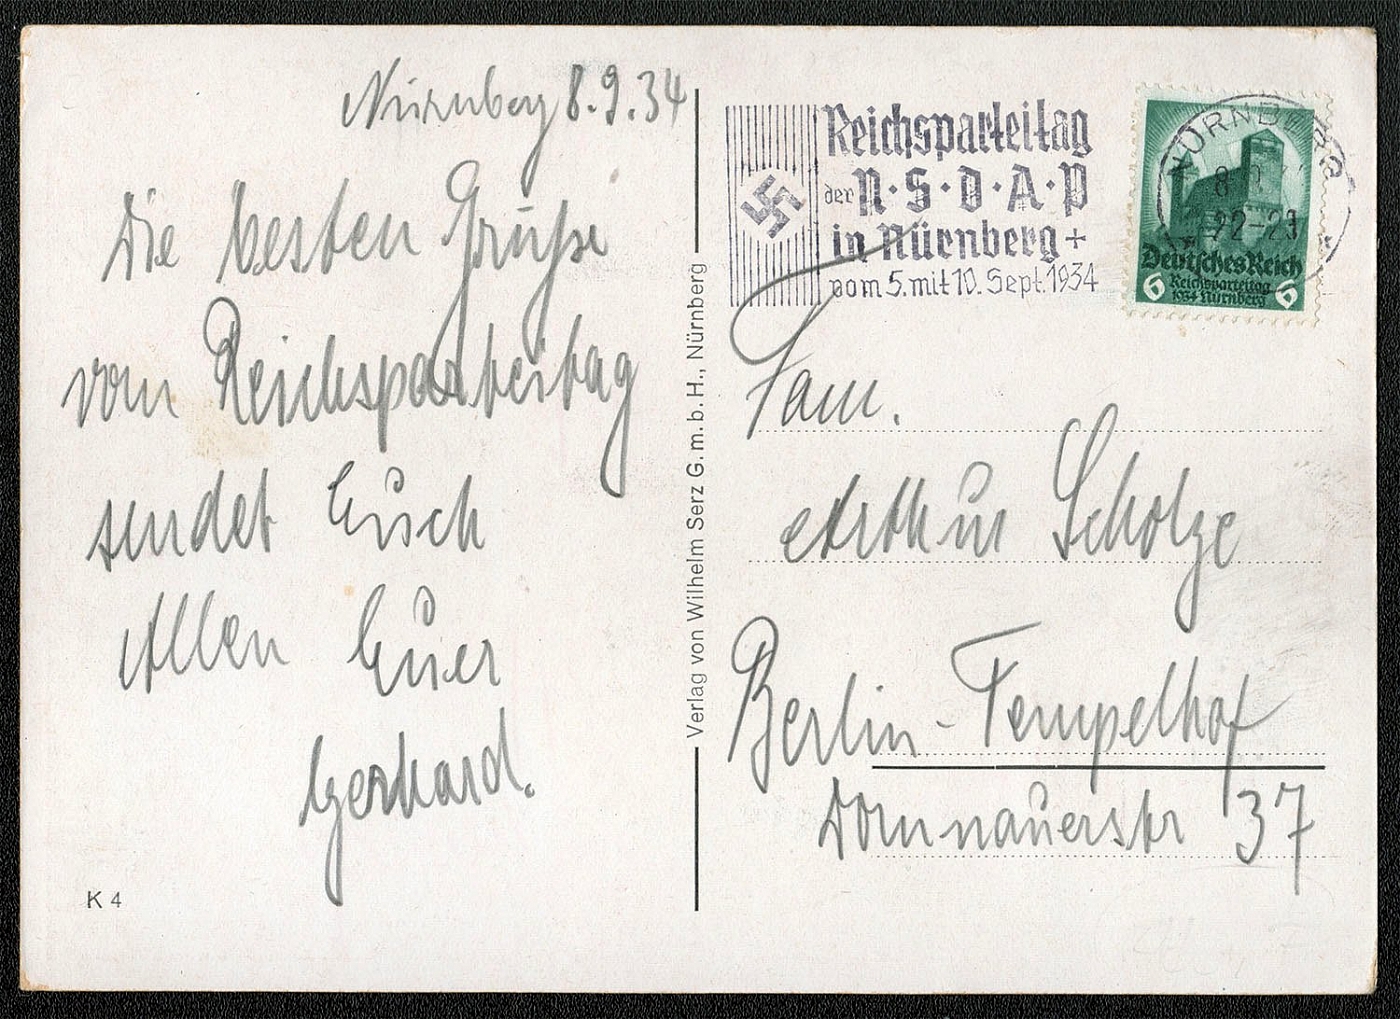 Nürnberg 8.9.34
Die besten Grüße
vom Reichsparteitag
sendet Euch
Allen Euer
Gerhard.
K 4
Verlag von Wilhelm Serz G.m.b.H., Nürnberg
Reichsparteitag
der N·S·D·A·P
in Nürnberg +
vom 5. mit 10. Sept. 1934
NÜRNBERG
22-23
Deutsches Reich
6 Reichsparteitag 6
1934 Nürnberg
Fam.
Arthur Scholze
Berlin-Tempelhof
Domnauerstr 37